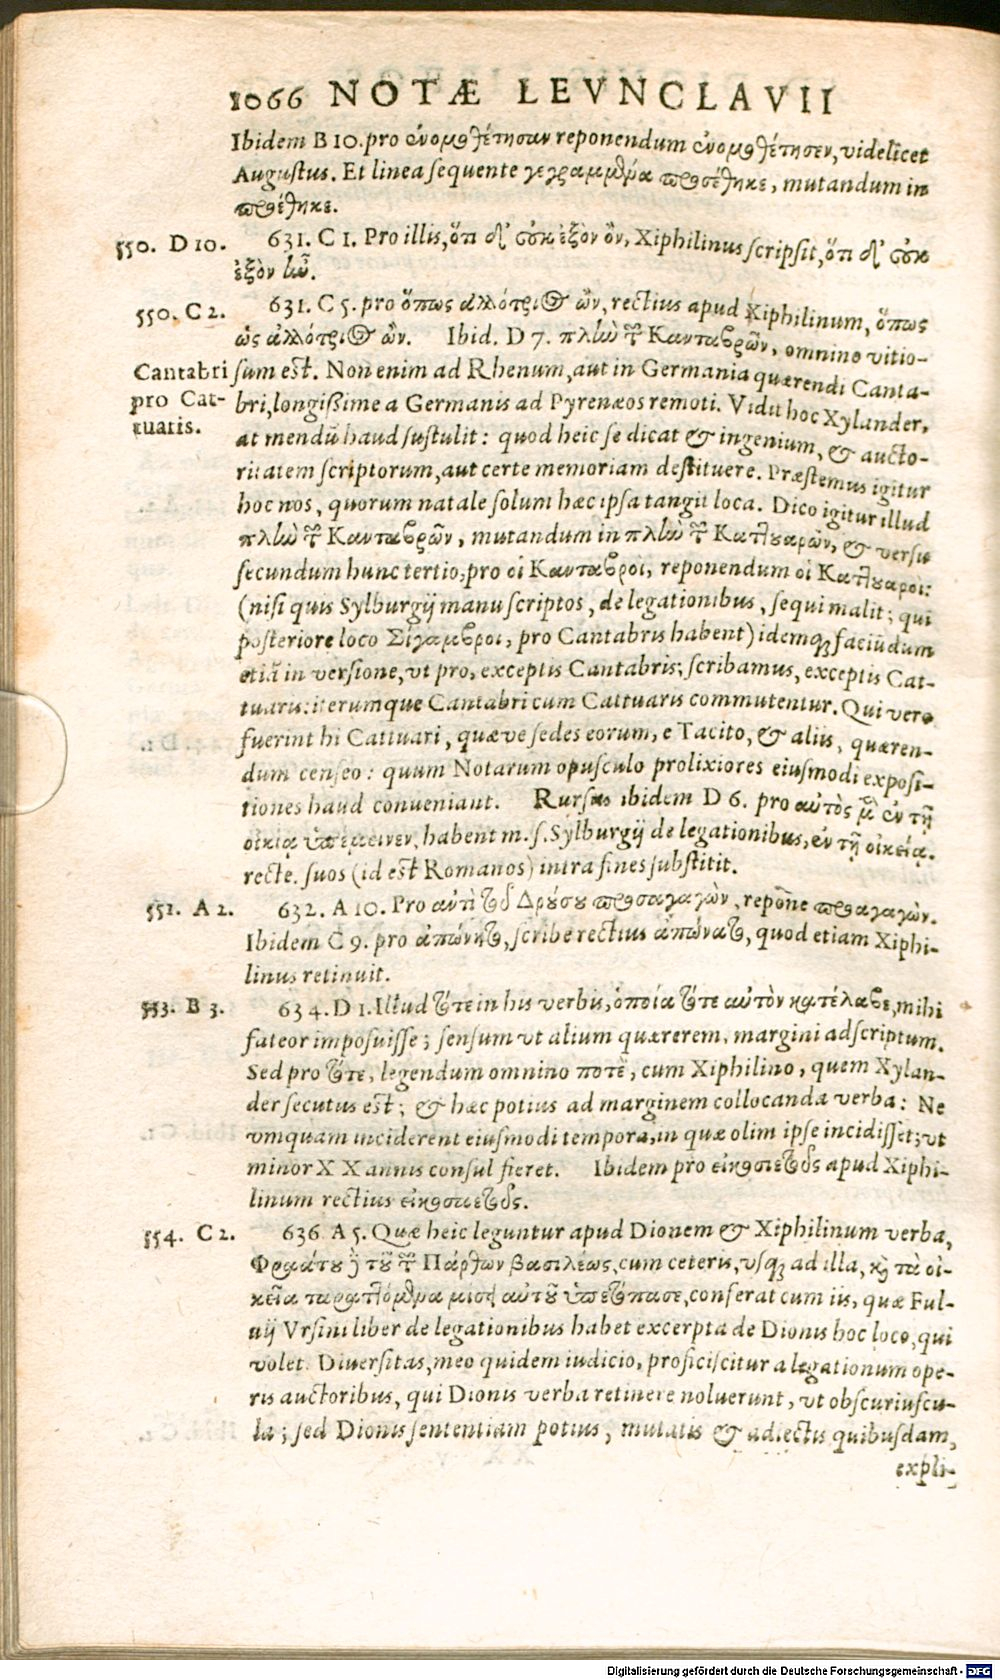 1066 NOTÆ LEVNCLAVII
Ibidem B 10. pro ἐνομοθέτησαν reponendum ἐνομοθέτησεν, videlicet
Augustus. Et linea sequente γεγραμμένα προσέθηκε, mutandum in
προέθηκε.
550. D 10. 631. C 1. Pro illis, ὅτι δι' οὐκ ἐξὸν ὂν, Xiphilinus scripsit, ὅτι δι' οὐκ
ἐξὸν ἦν.
550. C 2. 631. C 5. pro ὅπως ἀλλότριος ὢν, rectius apud Xiphilinum, ὅπως
ὡς ἀλλότριος ὢν. Ibid. D 7. πλὴν τῶν Κανταβρῶν, omnino vitio-
Cantabri sum est. Non enim ad Rhenum, aut in Germania quærendi Canta-
pro Cat- bri, longißime a Germanis ad Pyrenæos remoti. Vidit hoc Xylander,
tuaris. at mendū haud sustulit: quod heic se dicat & ingenium, & aucto-
ritatem scriptorum, aut certe memoriam destituere. Præstemus igitur
hoc nos, quorum natale solum hæc ipsa tangit loca. Dico igitur illud
πλὴν τῶν Κανταβρῶν, mutandum in πλὴν τῶν Καττουαρῶν, & versu
secundum hunc tertio, pro οἱ Κανταβροί, reponendum οἱ Καττουαροί:
(nisi quis Sylburgij manuscriptos, de legationibus, sequi malit; qui
posteriore loco Σίγαμβροι, pro Cantabris habent) idemq́ faciūdum
etiā in versione, vt pro, exceptis Cantabris; scribamus, exceptis Cat-
tuaris: iterumque Cantabri cum Cattuaris commutentur. Qui vero
fuerint hi Cattuari, quæve sedes eorum, e Tacito, & aliis, quæren-
dum censeo: quum Notarum opusculo prolixiores eiusmodi exposi-
tiones haud conveniant. Rursus ibidem D 6. pro αὐτὸς μὲν ἐν τῇ
οἰκίᾳ ὑπέμεινεν, habent m. s. Sylburgij de legationibus, ἐν τῇ οἰκείᾳ.
recte. suos (id est Romanos) intra fines substitit.
551. A 2. 632. A 10. Pro ἀντὶ τοῦ Δρούσου προσαγαγὼν, repone προαγαγὼν.
Ibidem C 9. pro ἀπώνητο, scribe rectius ἀπώνατο, quod etiam Xiphi-
linus retinuit.
553. B 3. 634. D 1. Illud τότε in his verbis, ὁποία τότε αὐτὸν κατέλαβε, mihi
fateor imposuisse; sensum vt alium quærerem, margini adscriptum.
Sed pro τότε, legendum omnino ποτὲ, cum Xiphilino, quem Xylan-
der secutus est; & hæc potius ad marginem collocanda verba: Ne
vmquam inciderent eiusmodi tempora, in quæ olim ipse incidisset; vt
minor XX annis consul fieret. Ibidem pro εἰκοσιετοὺς apud Xiphi-
linum rectius εἰκοσιετοῦς.
554. C 2. 636 A 5. Quæ heic leguntur apud Dionem & Xiphilinum verba,
Φραάτου γὰρ τοῦ τῶν Πάρθων βασιλέως, cum ceteris, vsq́ ad illa, καὶ τὰ οἰ-
κεῖα ταραττόμενα μισῇ αὐτοῦ ὑπετόπασε, conferat cum iis, quæ Ful-
uij Vrsini liber de legationibus habet excerpta de Dionis hoc loco, qui
volet. Diversitas, meo quidem iudicio, proficiscitur a legationum ope-
ris auctoribus, qui Dionis verba retinere noluerunt, vt obscuriuscu-
la; sed Dionis sententiam potius, mutatis & adiectis quibusdam,
expli-
Digitalisierung gefördert durch die Deutsche Forschungsgemeinschaft - DFG